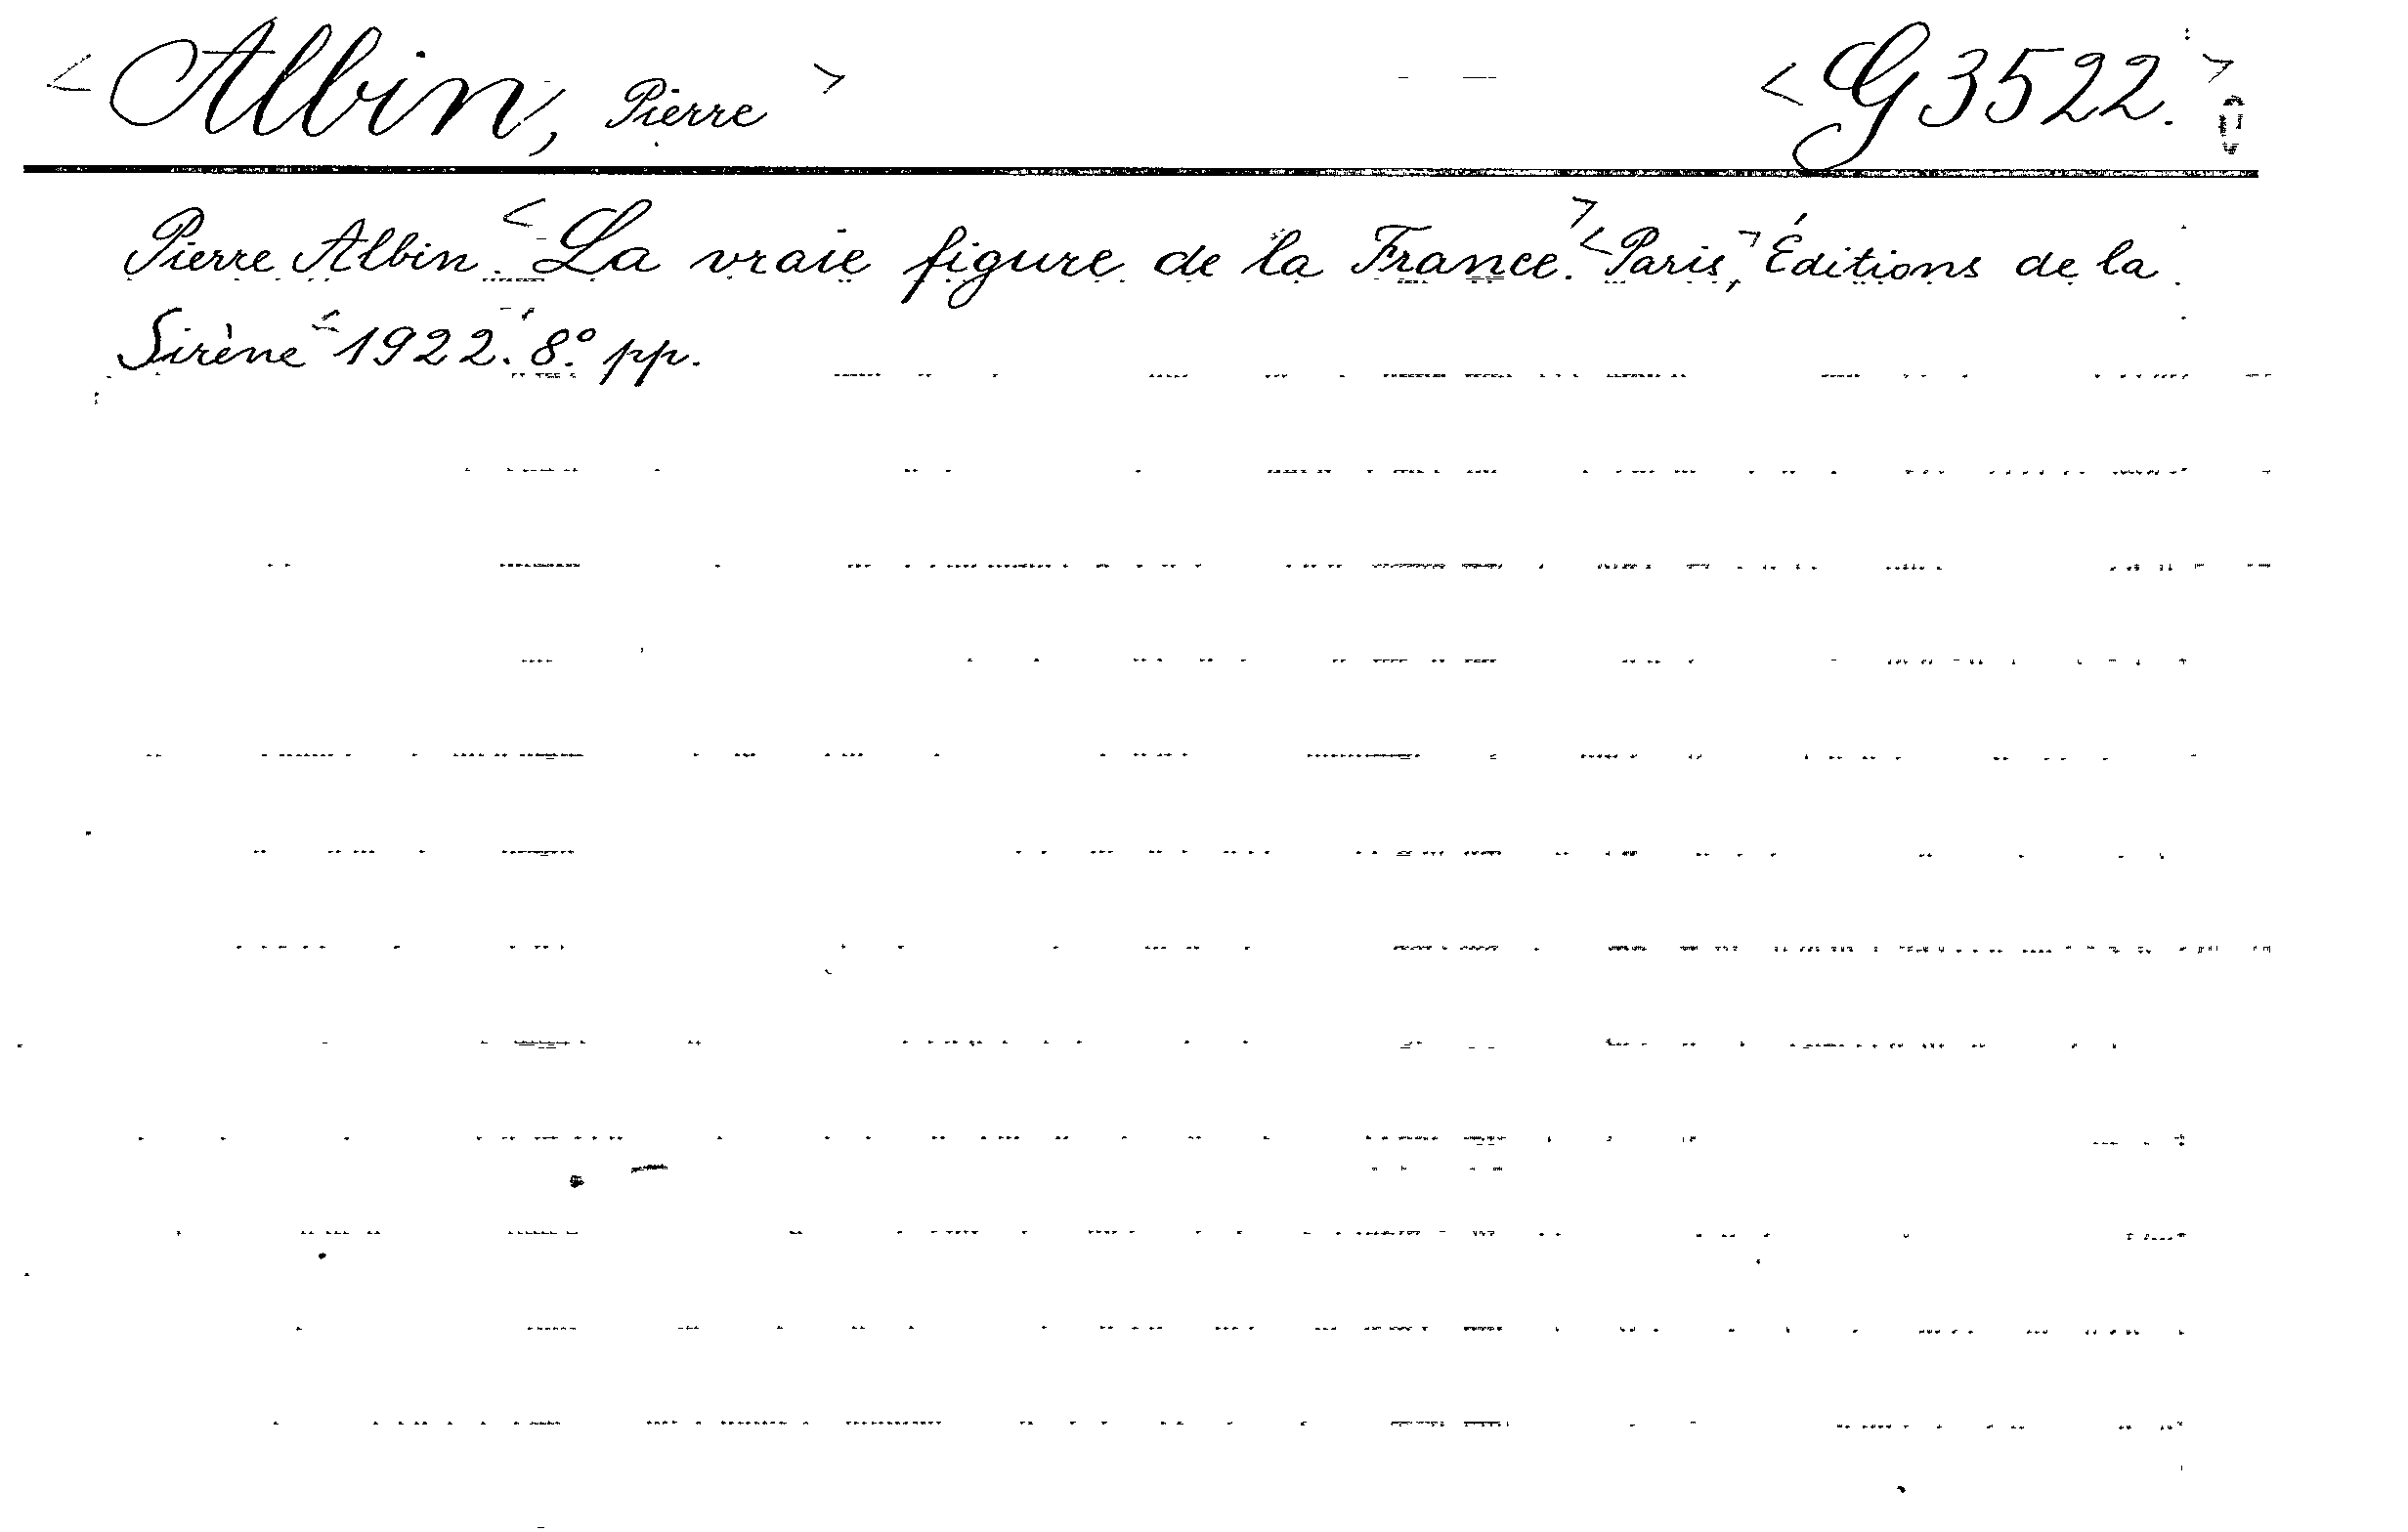 < Albin, Pierre > < G 3522. >
Pierre Albin. < La vraie figure de la France. > < Paris, > Éditions de la
Sirène < 1922. > 8.° pp.